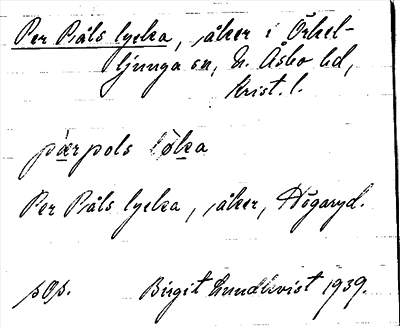 Per Påls lycka, åker i Örkel-
ljunga sn, N. Åsbo hd,
Krist. l.
pær pols løka
Per Påls lycka, åker, Högaryd.
pop. Birgit Lundkvist 1939.